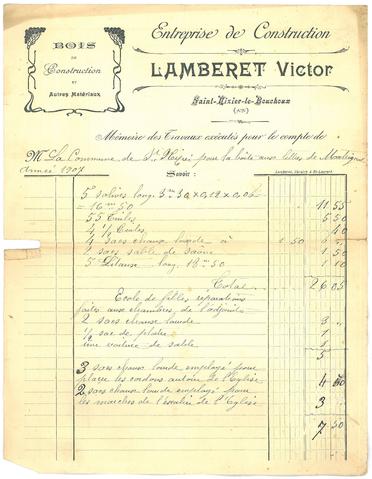 Entreprise de Construction
BOIS
DE
Construction
ET
Autres Matériaux
LAMBERET Victor
Saint-Nizier-le-Bouchoux
(AIN)
Mémoire des Travaux exécutés pour le compte de
M La Commune de St Nizier pour la boite aux lettres de
année 1907
Savoir :
5 solives long. 3m30 x 0,12 x 0,06
= 16m50 11 55
55 Tuiles 5 50
4 ½ Tuiles 40
4 sacs chaux lourde à 1 50 6 "
1 sac sable de saône 1 50
5 Litaux long. 18m50 1 10
Total 26 05
Ecole de filles réparations
faites aux chambres de l'adjointe
2 sacs chaux lourde 3 "
½ sac de plâtre 1
une voiture de sable 1
5
3 sacs chaux lourde employé pour
placer les cordons autour de l'Eglise 4 50
2 sacs chaux lourde employé pour
les marches de l'escalier de l'Eglise 3
7 50